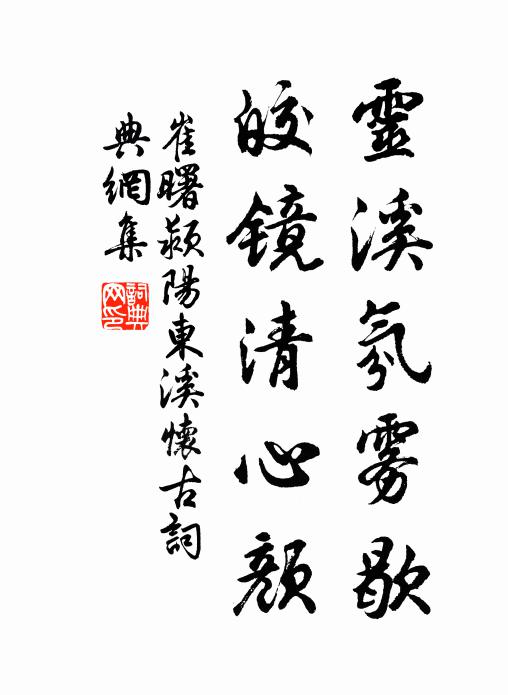 靈溪氛雾歇
皎镜清心颜
崔曙潁陽東溪懷古詞
典網集
詞典网印